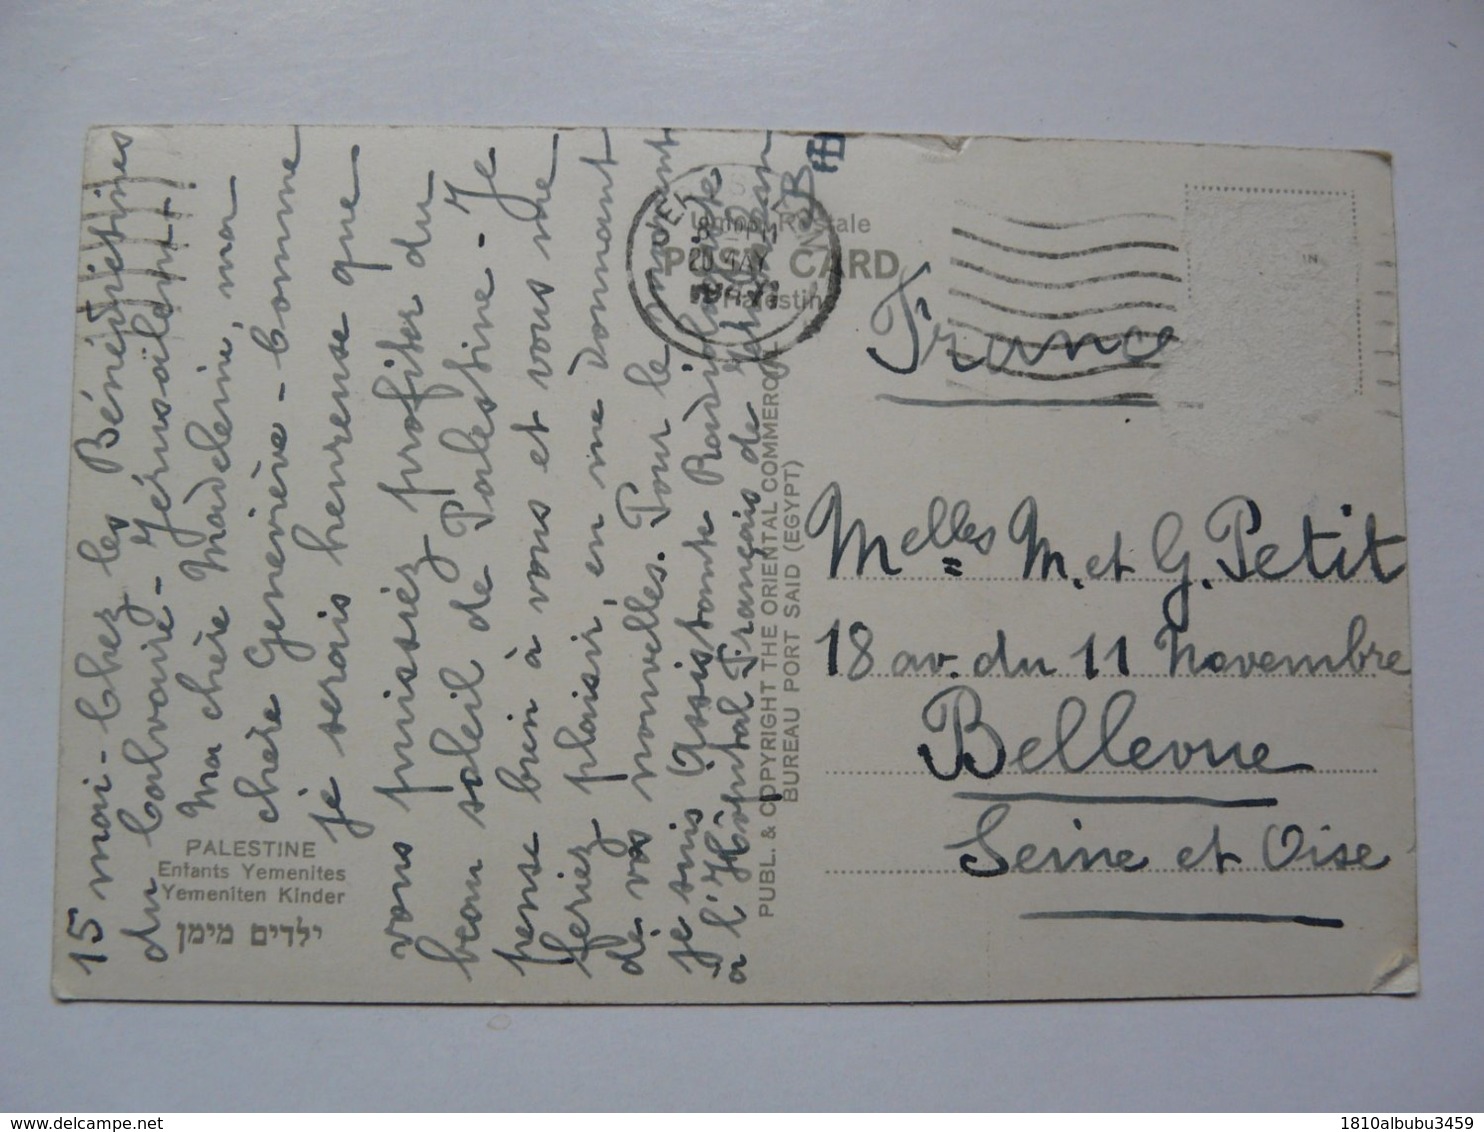 15 mai - Chez les Bénédictines
du Calvaire - Jérusalem
Ma chère Madeleine, ma
chère Geneviève - Comme
je serais heureuse que
vous puissiez profiter du
beau soleil de Palestine - Je
pense bien à vous et vous me
feriez plaisir, en me donnant
de vos nouvelles. Pour le moment
je suis Assistante Radiologiste
à l'Hôpital Français de
PALESTINE
Enfants Yemenites
Yemeniten Kinder
ילדים מימן
PUBL. & COPYRIGHT THE ORIENTAL COMMERCIAL
BUREAU PORT SAID (EGYPT)
Union Postale
POST CARD
Palestine
JER
8 PM
20 MAY
France
IN
Melles M. et G. Petit
18 av. du 11 Novembre
Bellevue
Seine et Oise
delcampe.net
1810albubu3459